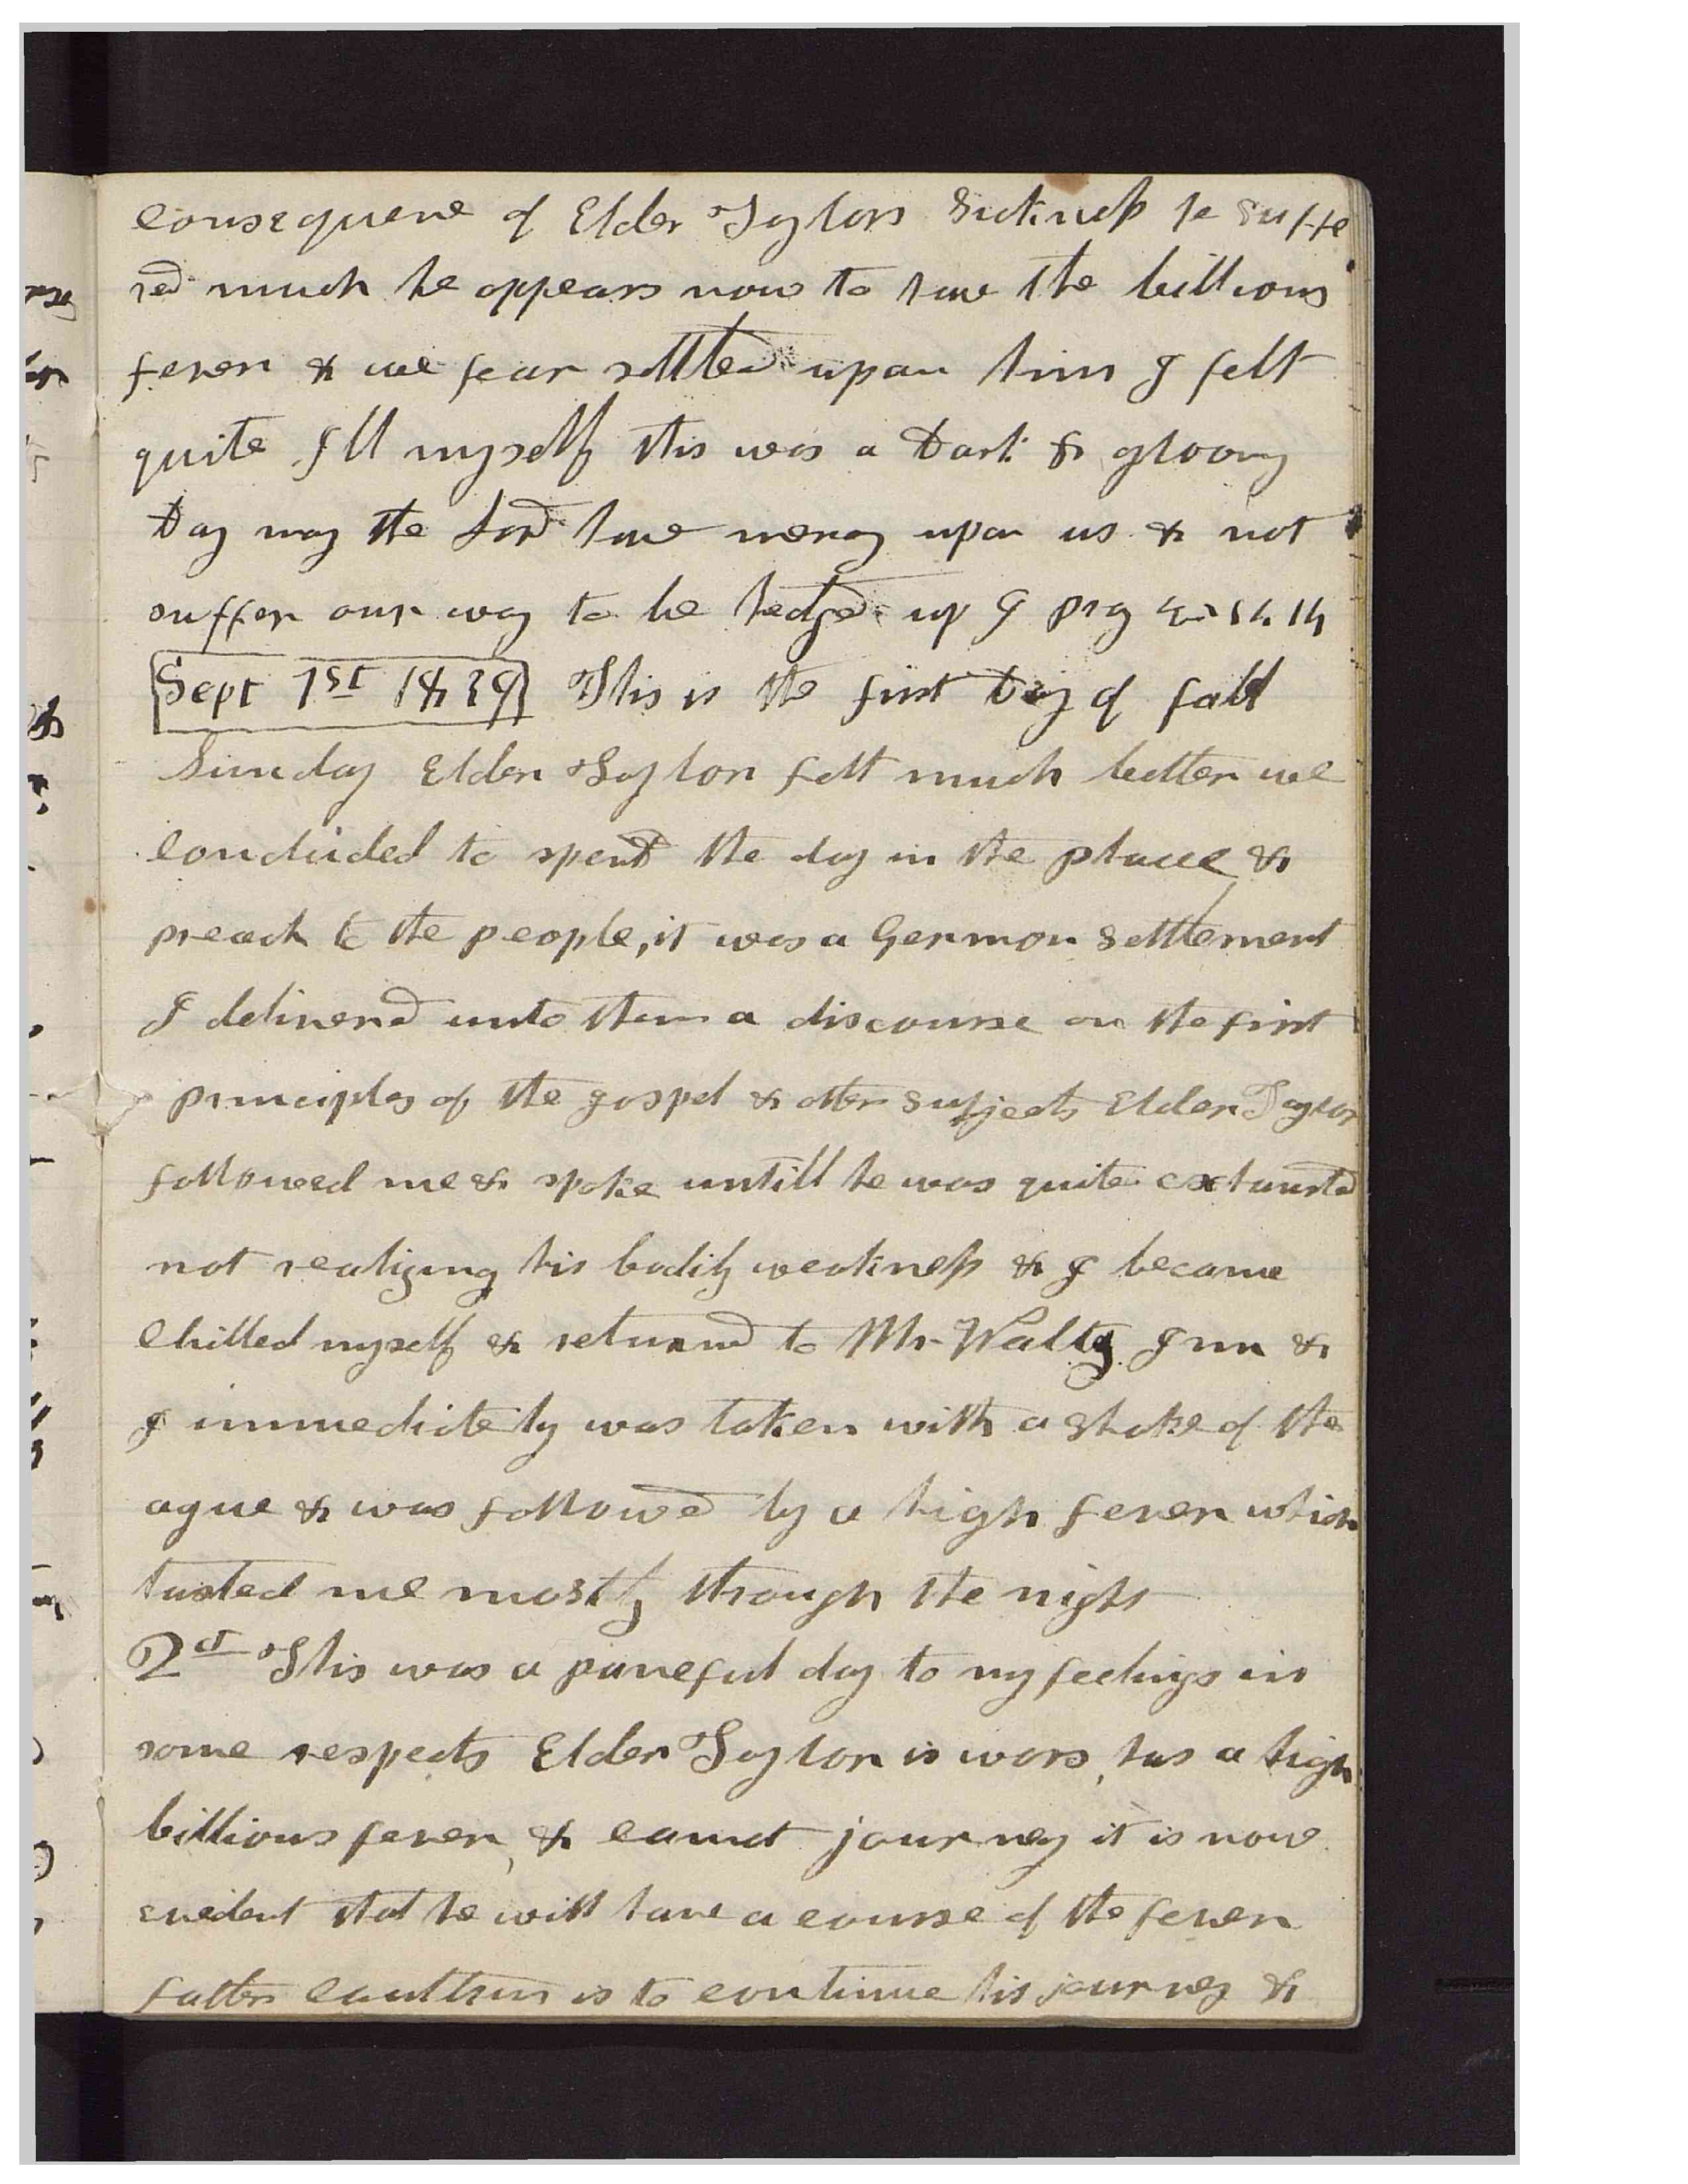 consequene of Elder Taylors Sickness he suffe
red much he appears now to have the billious
fever & we fear settled upon him I felt
quite Ill myself this was a Dark & gloomy
Day may the Lord have mercy upon us & not
suffer our way to be hedged up I pray
Sept 1st 1839 This is the first Day of fall
Sunday Elder Taylor felt much better we
concluded to spend the day in the place &
preach to the people, it was a German settlement
I deliverd unto them a discourse on the first
principles of the gospel & other subjects Elder Taylor
followed me & spoke untill he was quite exhausted
not realizing his bodily weakness & I became
chilled myself & returnd to Mr Waltz Inn &
I immediately was taken with a shake of the
ague & was followed by a high fever which
lasted me mostly through the night
2d This was a paneful day to my feelings in
some respects Elder Taylor is wors, has a high
billious fever, & cannot journey it is now
evident that he will have a course of the fever
father Coulthurs is to continue his journey &